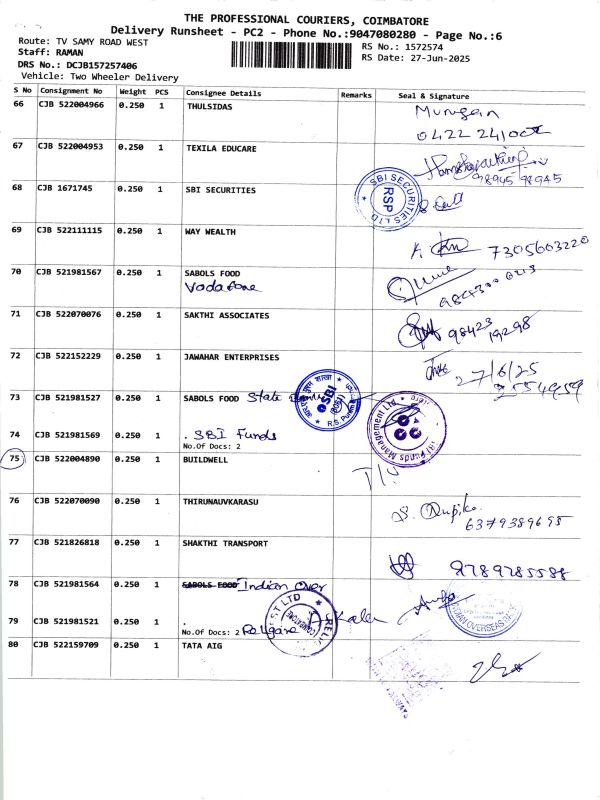 THE PROFESSIONAL COURIERS, COIMBATORE
Delivery Runsheet - PC2 - Phone No.:9047080280 - Page No.:6
Route: TV SAMY ROAD WEST
RS No.: 1572574
Staff: RAMAN
RS Date: 27-Jun-2025
DRS No.: DCJB157257406
Vehicle: Two Wheeler Delivery
S No Consignment No Weight PCS Consignee Details Remarks Seal & Signature
66 CJB 522004966 0.250 1 THULSIDAS Murugan
0422 24
67 CJB 522004953 0.250 1 TEXILA EDUCARE
98945 98945
68 CJB 1671745 0.250 1 SBI SECURITIES
SBI SECURITIES LTD
RSP
69 CJB 522111115 0.250 1 WAY WEALTH
7305603220
70 CJB 521981567 0.250 1 SABOLS FOOD
Vodafone
71 CJB 522070076 0.250 1 SAKTHI ASSOCIATES
98423
19298
72 CJB 522152229 0.250 1 JAWAHAR ENTERPRISES
27/6/25
2554959
73 CJB 521981527 0.250 1 SABOLS FOOD State Bank
SBI
R.S. Puram
74 CJB 521981569 0.250 1 . SBI Funds
No.Of Docs: 2
SBI Funds Management Ltd
75 CJB 522004890 0.250 1 BUILDWELL
76 CJB 522070090 0.250 1 THIRUNAUVKARASU
6379389695
77 CJB 521826818 0.250 1 SHAKTHI TRANSPORT
9789785588
78 CJB 521981564 0.250 1 SABOLS FOOD Indian Over
79 CJB 521981521 0.250 1 .
No.Of Docs: 2 Religare
COIMBATORE
INDIAN OVERSEAS BANK
80 CJB 522159709 0.250 1 TATA AIG